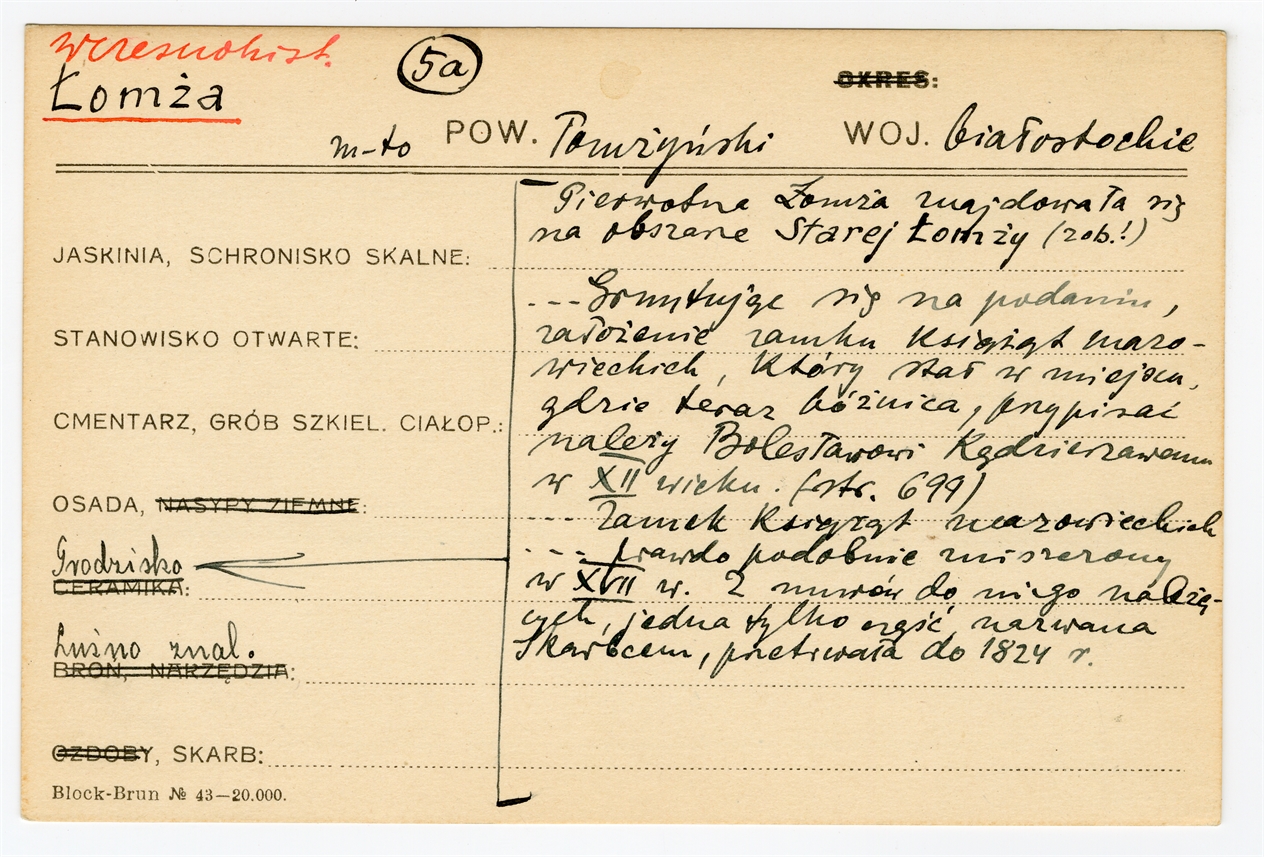 wczesnohist.
5a
OKRES:
Łomża
m-to POW. Łomżyński WOJ. białostockie
Pierwotna Łomża znajdowała się
na obszarze Starej Łomży (zob.!)
JASKINIA, SCHRONISKO SKALNE:
--- Gruntując się na podaniu,
założenie zamku Książąt mazo-
STANOWISKO OTWARTE:
wieckich, który stał w miejscu,
gdzie teraz bóżnica, przypisać
CMENTARZ, GRÓB SZKIEL. CIAŁOP.:
należy Bolesławowi Kędzierzawemu
w XII wieku. (str. 699)
OSADA, NASYPY ZIEMNE:
--- Zamek Książąt mazowieckich
--- prawdopodobnie zniszczony
Grodzisko
CERAMIKA:
w XVII w. Z murów do niego należą-
cych, jedna tylko część, nazwana
Skarbcem, przetrwała do 1824 r.
Luźno znal.
BROŃ, NARZĘDZIA:
OZDOBY, SKARB:
Block-Brun № 43—20.000.